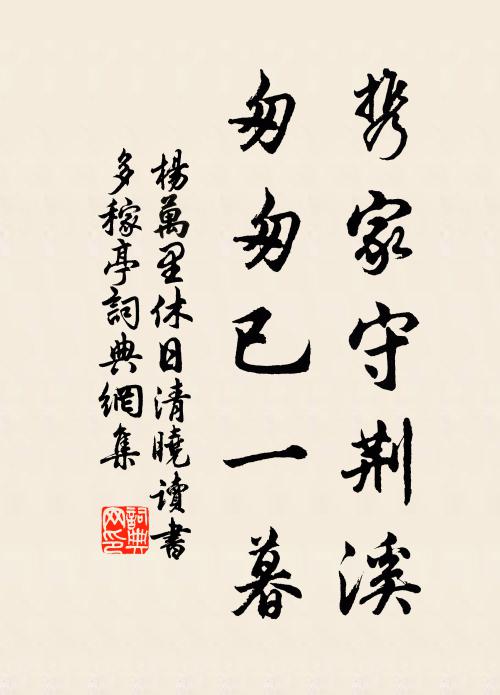 携家守荆溪
匆匆已一暮
楊萬里休日清曉讀書
多稼亭詞典網集
詞典
网印